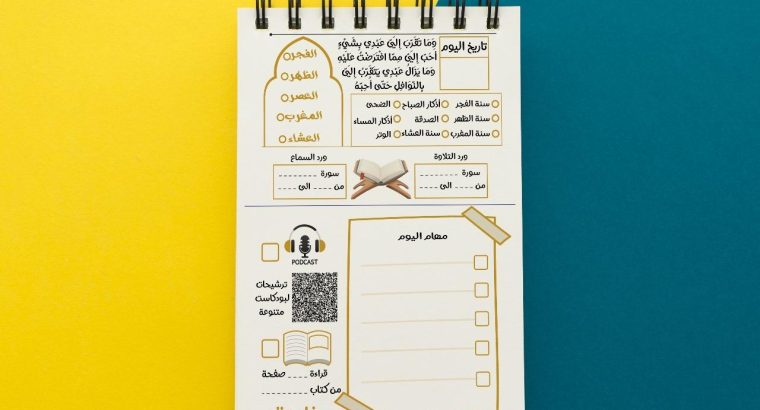 تاريخ اليوم
وَمَا تَقَرَّبَ إِلَيَّ عَبْدِي بِشَيْءٍ
أَحَبَّ إِلَيَّ مِمَّا افْتَرَضْتُ عَلَيْهِ
وَمَا يَزَالُ عَبْدِي يَتَقَرَّبُ إِلَيَّ
بِالنَّوَافِلِ حَتَّى أُحِبَّهُ
الفجر
الظهر
العصر
المغرب
العشاء
سنة الفجر أذكار الصباح الضحى
سنة الظهر الصدقة أذكار المساء
سنة المغرب سنة العشاء الوتر
ورد التلاوة
سورة
من الى
ورد السماع
سورة
من الى
مهام اليوم
PODCAST
ترشيحات
لبودكاست
متنوعة
قراءة صفحة
من كتاب